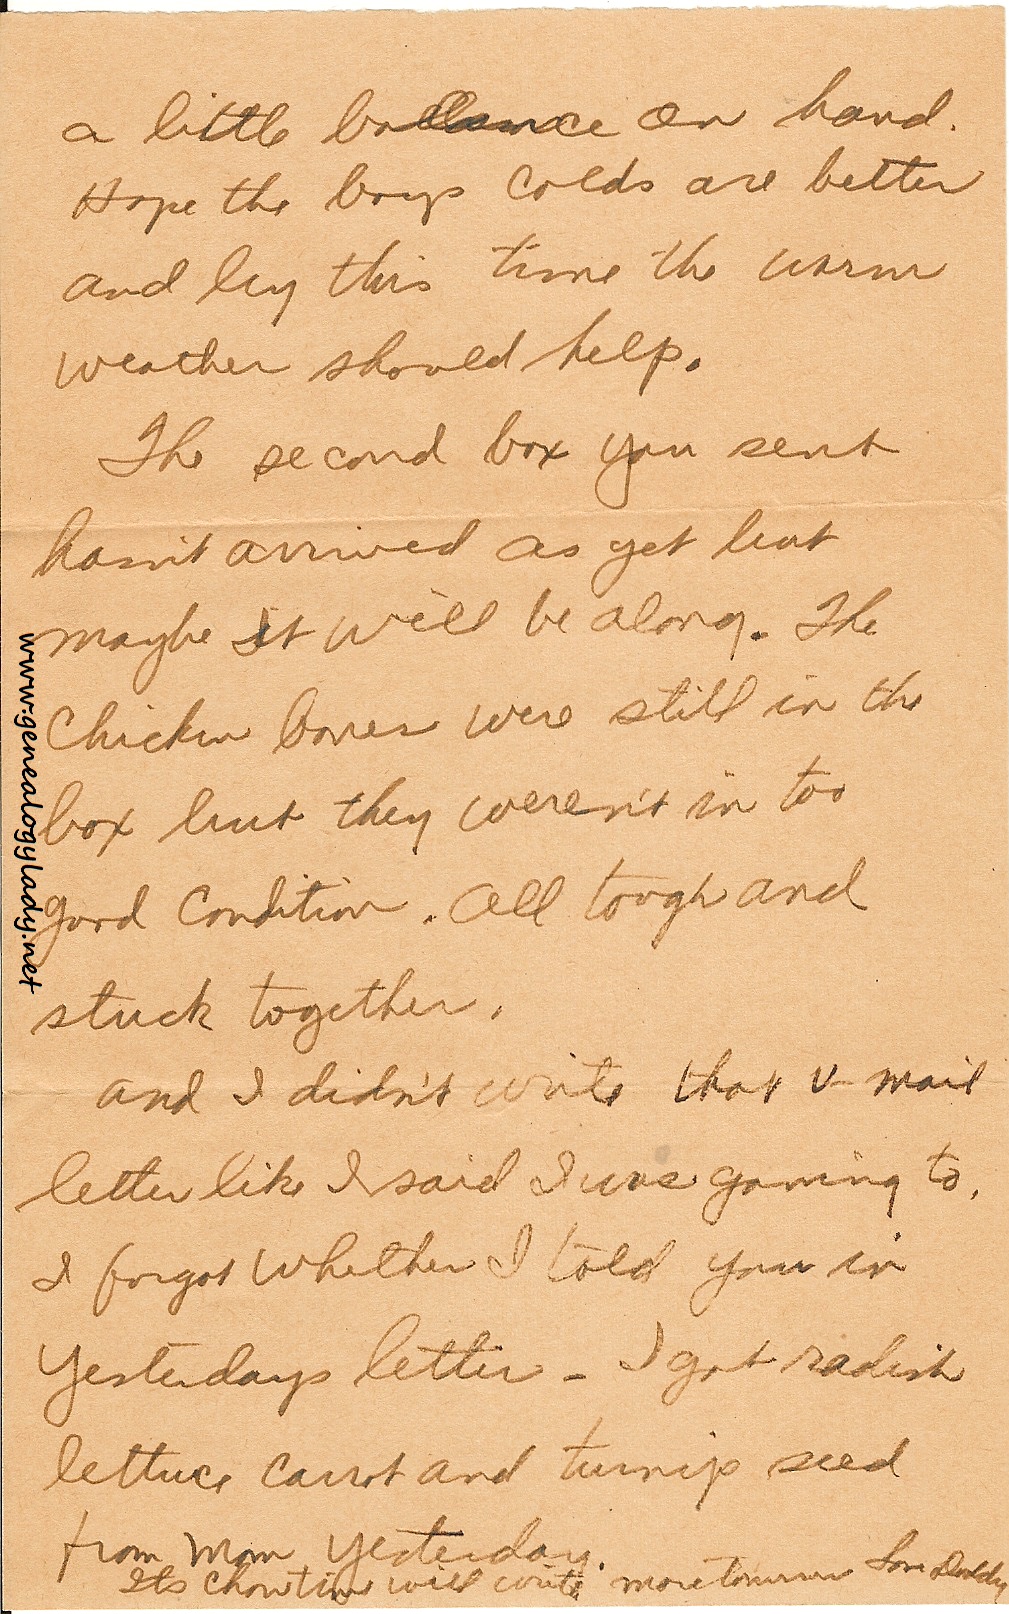 a little ballance on hand.
Hope the boys colds are better
and by this time the warm
weather should help.
The second box you sent
hasn't arrived as yet but
maybe it will be along. The
Chicken bones were still in the
box but they weren't in too
good condition. All tough and
stuck together.
and I didn't write that V-mail
letter like I said I was gonning to.
I forgot whether I told you in
Yesterdays letter - I got radish
lettuce carrot and turnip seed
from Mom yesterday.
Its chowtime will write more tomorrow Love Daddy
www.genealogylady.net